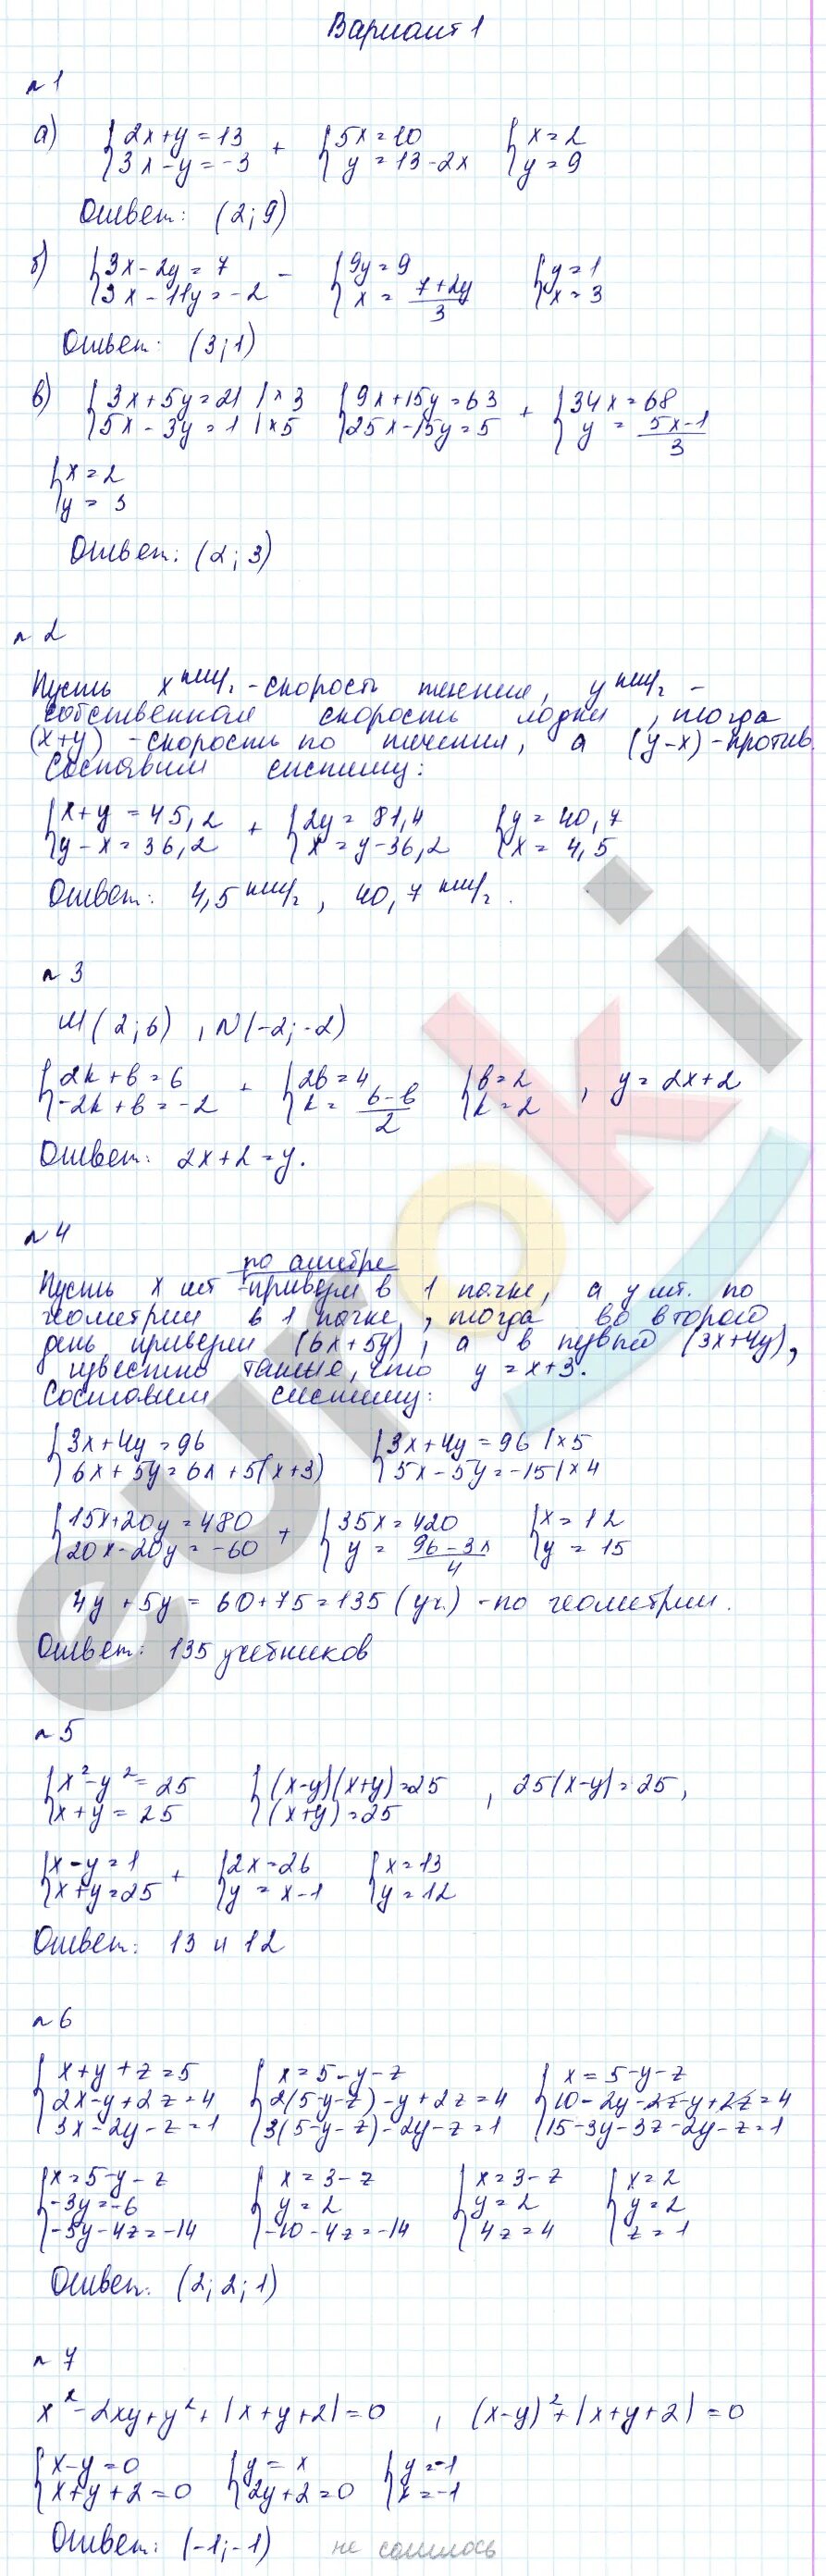 Вариант 1
№1
а) {2x+y=13 {3x-y=-3 + {5x=10 {y=13-2x {x=2 {y=9
Ответ: (2;9)
б) {3x-2y=7 {3x-11y=-2 - {9y=9 {x=(7+2y)/3 {y=1 {x=3
Ответ: (3;1)
в) {3x+5y=21 |×3 {5x-3y=1 |×5 {9x+15y=63 {25x-15y=5 + {34x=68 {y=(5x-1)/3
{x=2 {y=3
Ответ: (2;3)
№2
Пусть x км/ч - скорость течения, y км/ч -
собственная скорость лодки, тогда
(x+y) - скорость по течения, а (y-x) - против.
Составим систему:
{x+y=45,2 {y-x=36,2 + {2y=81,4 {x=y-36,2 {y=40,7 {x=4,5
Ответ: 4,5 км/ч, 40,7 км/ч.
№3
M(2;6), N(-2;-2)
{2k+b=6 {-2k+b=-2 + {2b=4 {k=(6-b)/2 {b=2 {k=2 , y=2x+2
Ответ: 2x+2=y.
№4
по алгебре
Пусть x шт привезли в 1 пачке, а y шт. по
геометрии в 1 пачке, тогда во второй
день привезли (6x+5y), а в первый (3x+4y),
известно также, что y=x+3.
Составим систему:
{3x+4y=96 {6x+5y=6x+5(x+3) {3x+4y=96 |×5 {5x-5y=-15 |×4
{15x+20y=480 {20x-20y=-60 + {35x=420 {y=(96-3x)/4 {x=12 {y=15
4y+5y=60+75=135 (уч.) - по геометрии.
Ответ: 135 учебников
№5
{x²-y²=25 {x+y=25 {(x-y)(x+y)=25 {(x+y)=25 , 25(x-y)=25,
{x-y=1 {x+y=25 + {2x=26 {y=x-1 {x=13 {y=12
Ответ: 13 и 12
№6
{x+y+z=5 {2x-y+2z=4 {3x-2y-z=1 {x=5-y-z {2(5-y-z)-y+2z=4 {3(5-y-z)-2y-z=1 {x=5-y-z {10-2y-2z-y+2z=4 {15-3y-3z-2y-z=1
{x=5-y-z {-3y=-6 {-5y-4z=-14 {x=3-z {y=2 {-10-4z=-14 {x=3-z {y=2 {4z=4 {x=2 {y=2 {z=1
Ответ: (2;2;1)
№7
x²-2xy+y²+|x+y+2|=0 , (x-y)²+|x+y+2|=0
{x-y=0 {x+y+2=0 {y=x {2y+2=0 {y=-1 {x=-1
Ответ: (-1;-1) не сошлось
euroki